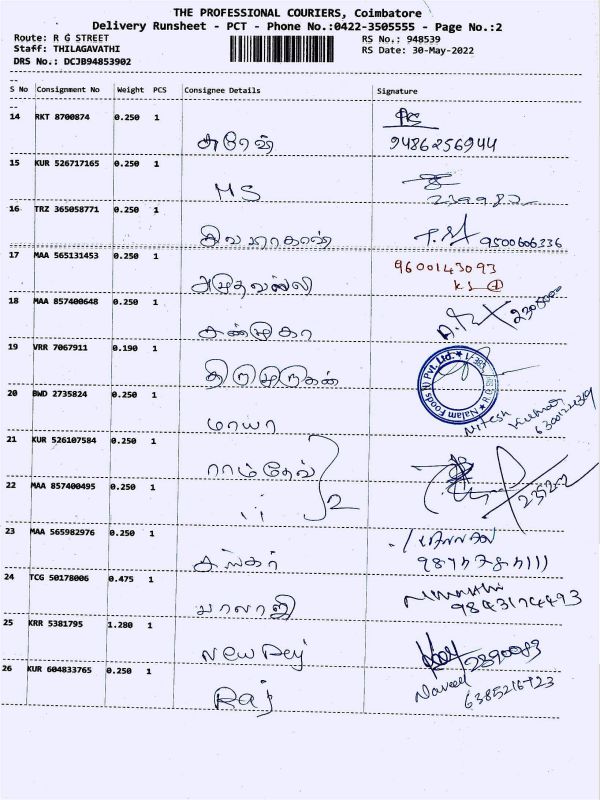 THE PROFESSIONAL COURIERS, Coimbatore
Delivery Runsheet - PCT - Phone No.:0422-3505555 - Page No.:2
Route: R G STREET RS No.: 948539
Staff: THILAGAVATHI RS Date: 30-May-2022
DRS No.: DCJB94853902
S No Consignment No Weight PCS Consignee Details Signature
14 RKT 8700874 0.250 1
சுரேஷ் 9486256944
15 KUR 526717165 0.250 1
MS
16 TRZ 365058771 0.250 1
9500606336
17 MAA 565131453 0.250 1
அமுதவல்லி 9600143093
18 MAA 857400648 0.250 1
சண்முகா
19 VRR 7067911 0.190 1
திருமுருகன் Nalam Foods (I) Pvt. Ltd.
20 BWD 2735824 0.250 1
மாயா Nitesh Kumar
21 KUR 526107584 0.250 1
ராம்தேவ்
22 MAA 857400495 0.250 1
,, 2
23 MAA 565982976 0.250 1
சங்கர்
24 TCG 50178006 0.475 1
பாலாஜி 9843174493
25 KRR 5381795 1.280 1
New Rej 2390083
26 KUR 604833765 0.250 1
Raj Naveen 6385216723